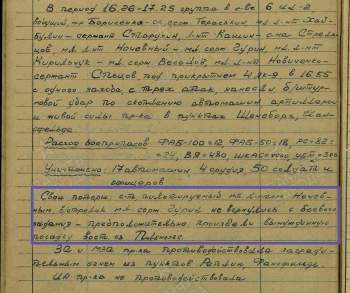 В период 16.26-17.25 группа в с-ве 6 Ил-2
ведущий мл. л-т Борисенко - ст. серж Тераскин, мл. л-т Хай-
буллин - сержант Старухин, л-нт Кашин - с-на Стрель-
цов, мл. л-нт Ночевный - мл. серж Зудин, мл. л-нт
Кирильчук - мл. серж Веселов, мл. л-нт Новиченко -
сержант Спецов под прикрытием 4 Як-9 в 16.55
с одного захода, с трех атак, нанесли б/штур-
мовой удар по скоплению автомашин, артиллерии
и живой силы пр-ка в пунктах Шенеборг,
Расход боеприпасов ФАБ-100=12, ФАБ-50=18, РС-82=
=24, ВЯ=480, ШКАС=1000
Уничтожено: 17 автомашин, 4 орудия, 50 солдат и
офицеров
Свои потери: с-т пилотируемый мл. л-нтом Ночев-
ным, в/стрелок мл. серж Зудин не вернулись с боевого
задания - предположительно произвели вынужденную
посадку вост.
ЗА и МЗА пр-ка противодействовала загради-
тельным огнем из пунктов Реплин,
ИА пр-ка не противодействовала